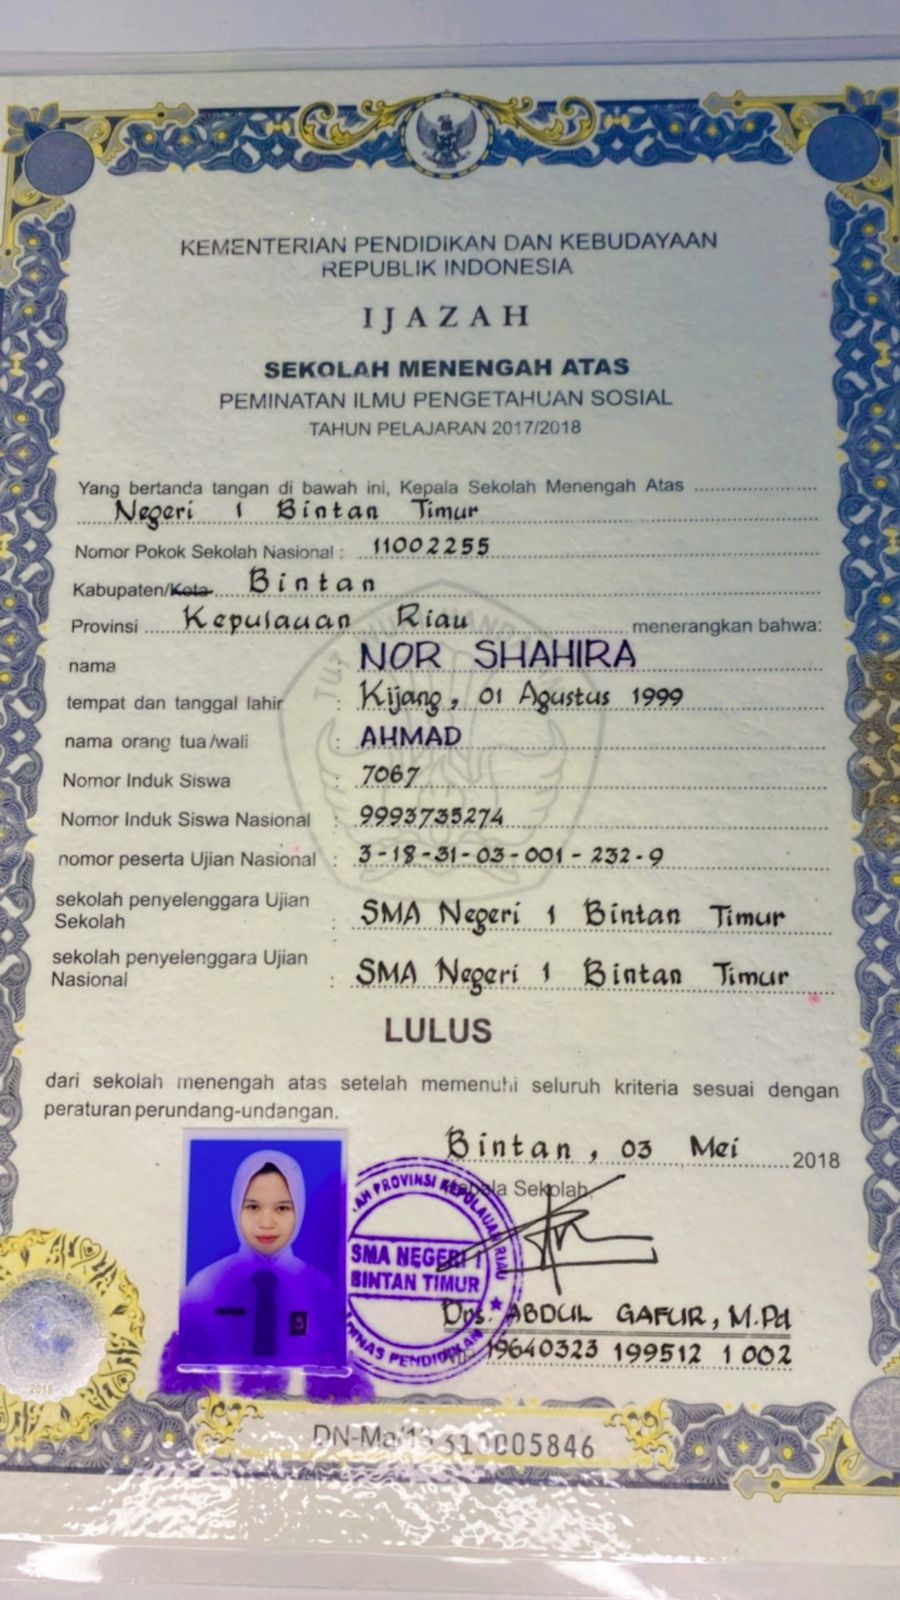 KEMENTERIAN PENDIDIKAN DAN KEBUDAYAAN
REPUBLIK INDONESIA
IJAZAH
SEKOLAH MENENGAH ATAS
PEMINATAN ILMU PENGETAHUAN SOSIAL
TAHUN PELAJARAN 2017/2018
Yang bertanda tangan di bawah ini, Kepala Sekolah Menengah Atas
Negeri 1 Bintan Timur
Nomor Pokok Sekolah Nasional : 11002255
Kabupaten/Kota Bintan
Provinsi Kepulauan Riau menerangkan bahwa:
nama : NOR SHAHIRA
tempat dan tanggal lahir : Kijang, 01 Agustus 1999
nama orang tua/wali : AHMAD
Nomor Induk Siswa : 7067
Nomor Induk Siswa Nasional : 9993735274
nomor peserta Ujian Nasional : 3-18-31-03-001-232-9
sekolah penyelenggara Ujian
Sekolah : SMA Negeri 1 Bintan Timur
sekolah penyelenggara Ujian
Nasional : SMA Negeri 1 Bintan Timur
LULUS
dari sekolah menengah atas setelah memenuhi seluruh kriteria sesuai dengan
peraturan perundang-undangan.
Bintan, 03 Mei 2018
Kepala Sekolah,
PROVINSI KEPULAUAN RIAU
SMA NEGERI 1
BINTAN TIMUR
DINAS PENDIDIKAN
Drs. ABDUL GAFUR, M.Pd
19640323 199512 1 002
2018
DN-Ma/13 310005846